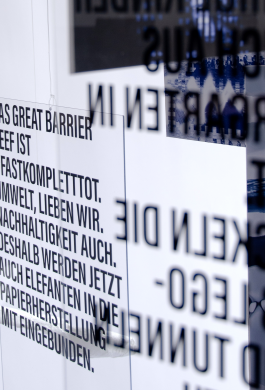 AS GREAT BARRIER
EEF IST
FASTKOMPLETTTOT.
MWELT, LIEBEN WIR.
NACHHALTIGKEIT AUCH.
DESHALB WERDEN JETZT
AUCH ELEFANTEN IN DIE
PAPIERHERSTELLUNG
MIT EINGEBUNDEN.
AUS
GARTEN IN
KELN DIE
LEGO-
D TUNNEL